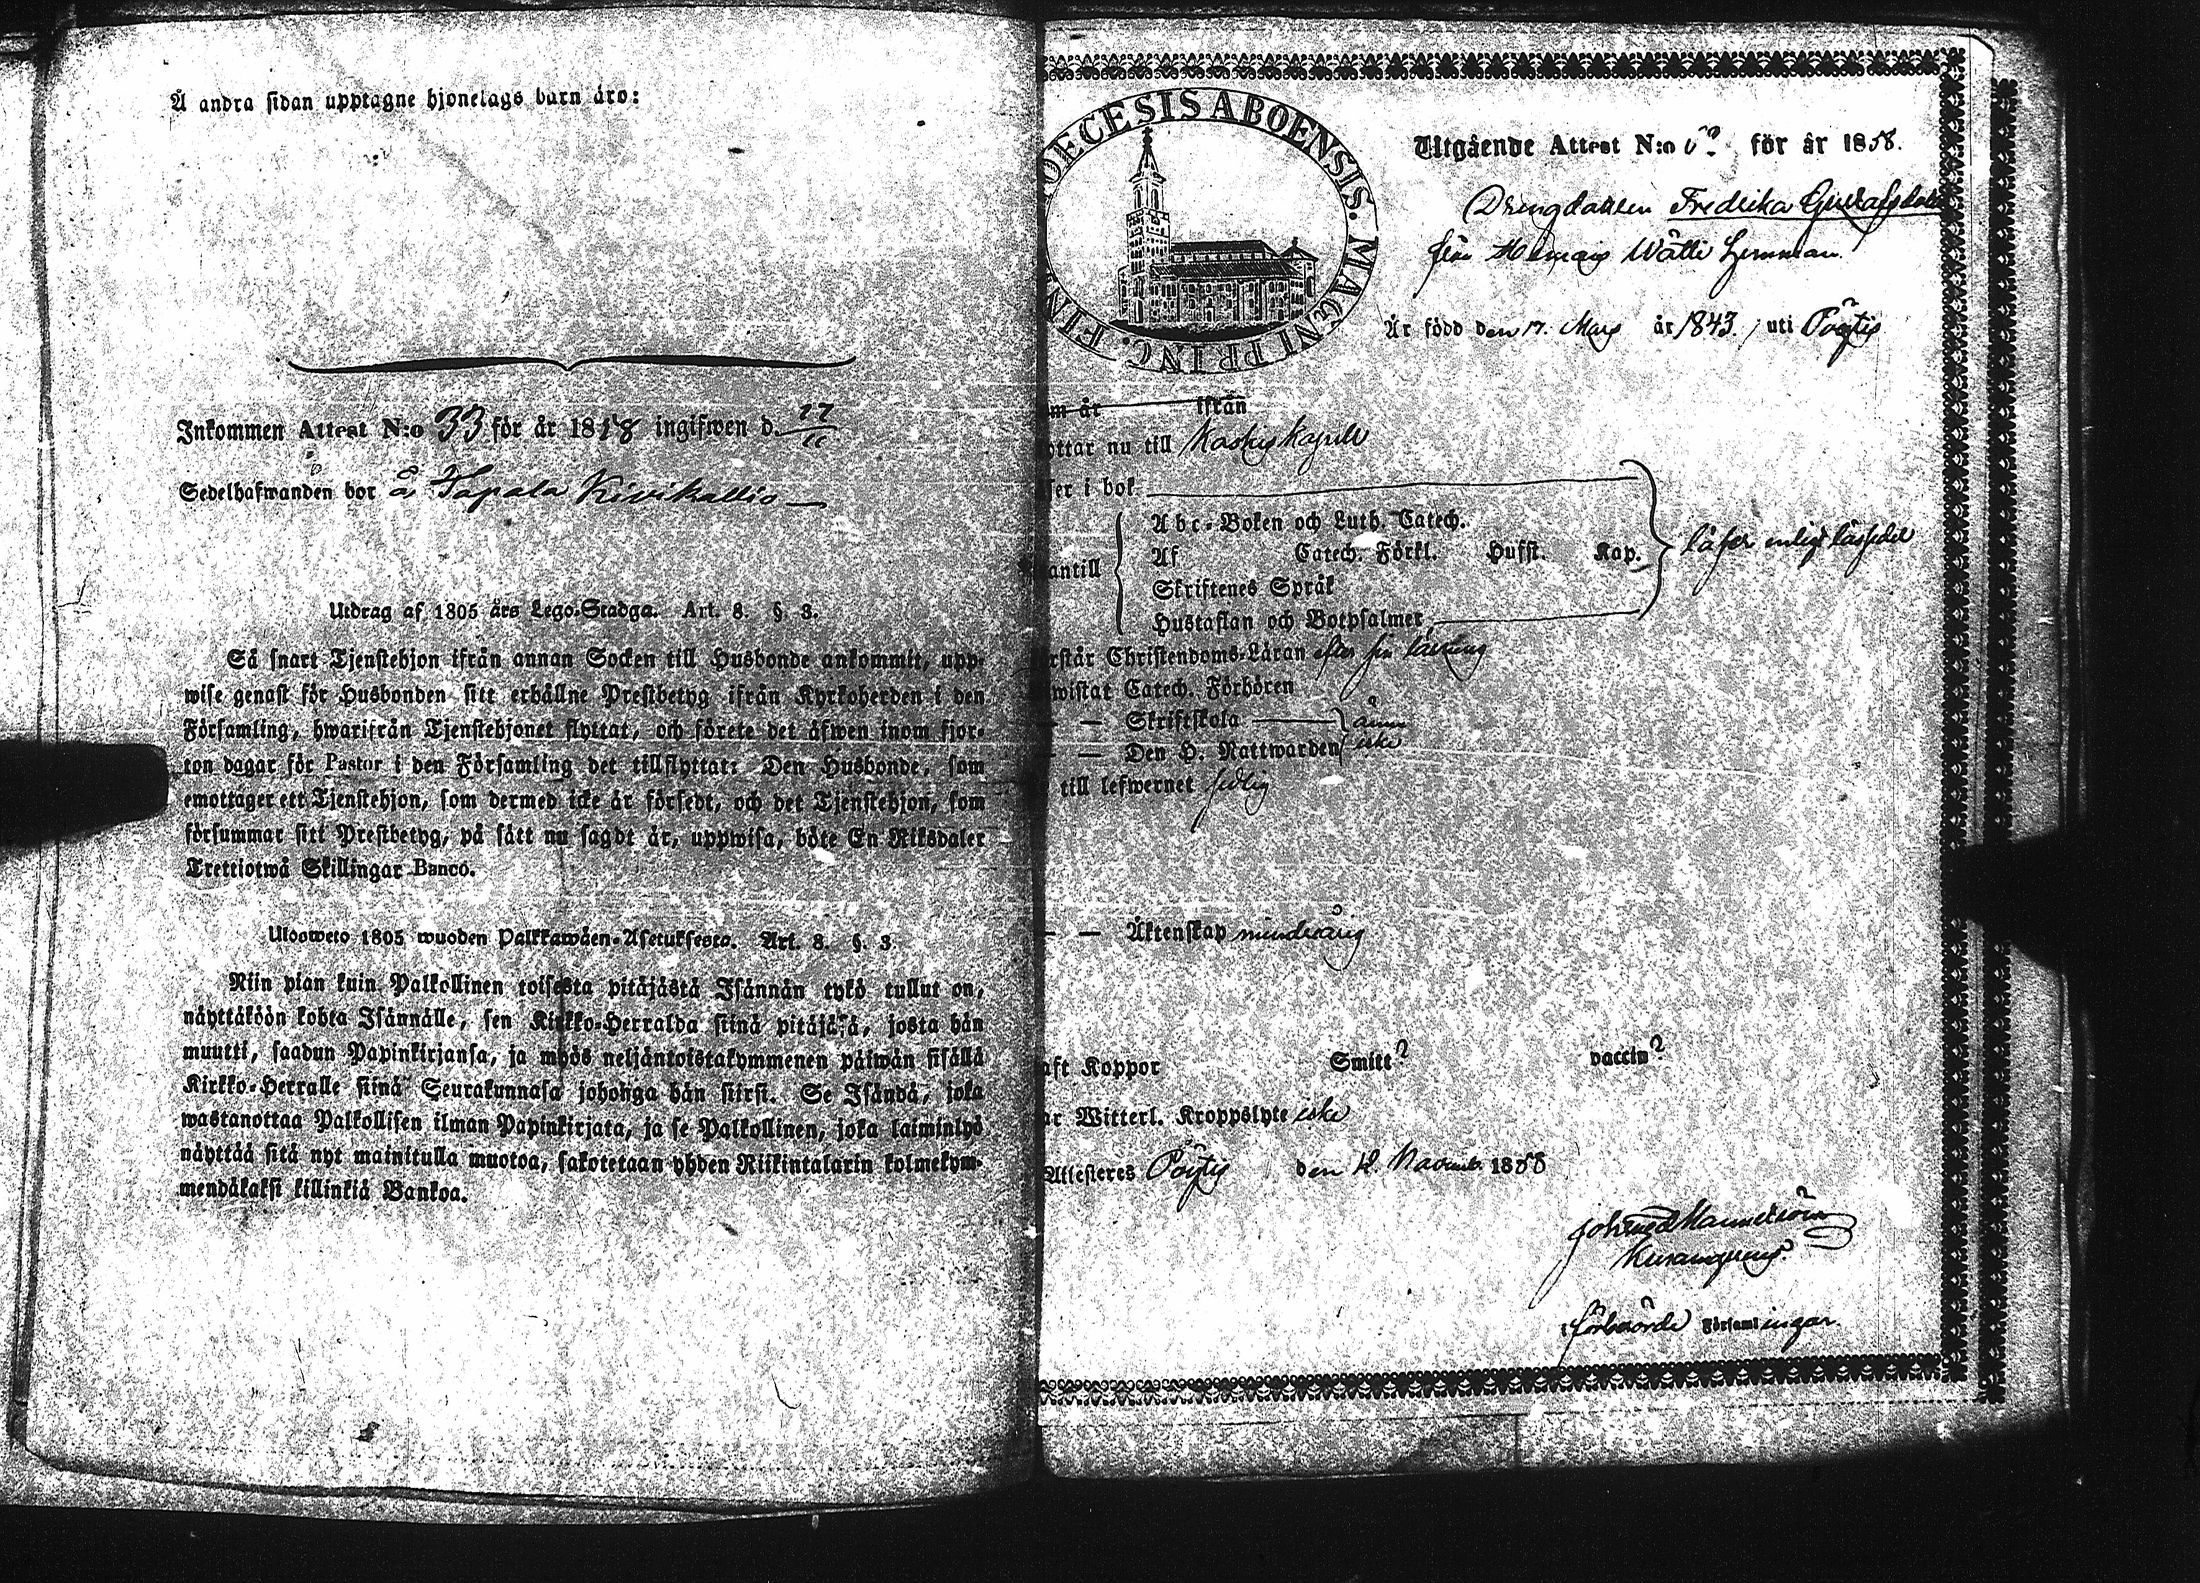 Å andra sidan upptagne hjonelags barn äro:
Inkommen Attest N:o 33 för år 1858 ingifwen d. 27/11
Sedelhafwanden bor å Tapala Kivikallio
Utdrag af 1805 års Lego-Stadga. Art. 8. §. 3.
Så snart Tjenstehjon ifrån annan Socken till Husbonde ankommit, upp-
wise genast för Husbonden sitt erhållne Prestbetyg ifrån Kyrkoherden i den
Församling, hwarifrån Tjenstehjonet flyttat, och förete det äfwen inom fjor-
ton dagar för Pastor i den Församling det tillflyttat: Den Husbonde, som
emottager ett Tjenstehjon, som dermed icke är försedt, och det Tjenstehjon, som
försummar sitt Prestbetyg, på sätt nu sagdt är, uppwisa, böte En Riksdaler
Trettiotwå Skillingar Banco.
Ulosweto 1805 wuoden Palkkawäen-Asetuksesta. Art. 8. §. 3.
Niin pian kuin Palkollinen toisesta pitäjästä Isännän tykö tullut on,
näyttäköön kohta Isännälle, sen Kirkko-Herralda siinä pitäjäsä, josta hän
muutti, saadun Papinkirjansa, ja myös neljäntoistakymmenen päiwän sisällä
Kirkko-Herralle siinä Seurakunnasa johonga hän siirsi. Se Isändä, joka
wastanottaa Palkollisen ilman Papinkirjata, ja se Palkollinen, joka laiminlyö
näyttää sitä nyt mainitulla muotoa, sakotetaan yhden Riikintalarin kolmekym-
mendäkaksi killinkiä Bankoa.
OECESIS ABOENSIS. MAGNI PRINC. FIN
Utgående Attest N:o för år 1858.
Drengdottren Fredrika Gustafsdotter
från Wätti Hemman
Är född den 17. Mars år 1843. uti Pöytis
m år ifrån
ottar nu till Koskis Kapell
ser i bok
antill
Abc-Boken och Luth. Catech.
Af Catech. Förkl. Hufst. Kap.
Skriftenes Språk
Hustaflan och Botpsalmer
läser enligt läsfedel
rstår Christendoms-Läran efter sin lärning
wistat Catech. Förhören
— — Skriftskola ännu
— — Den H. Nattwarden icke
till lefwernet sedlig
— — Äktenskap minderårig
aft Koppor Smitt? vaccin?
ar Witterl. Kroppslyte icke
Attesteres Pöytis den 12. Novemb. 1858
i förberörde Församlingar.